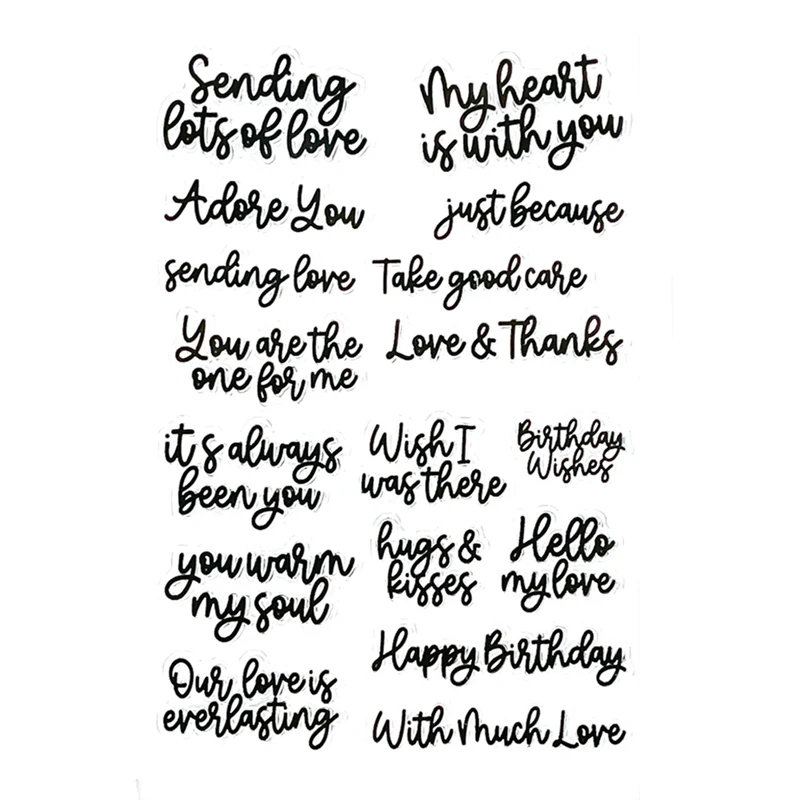 Sending
lots of love
My heart
is with you
Adore You
just because
sending love
Take good care
You are the
one for me
Love & Thanks
it's always
been you
Wish I
was there
Birthday
Wishes
you warm
my soul
hugs &
kisses
Hello
my love
Our love is
everlasting
Happy Birthday
With Much Love